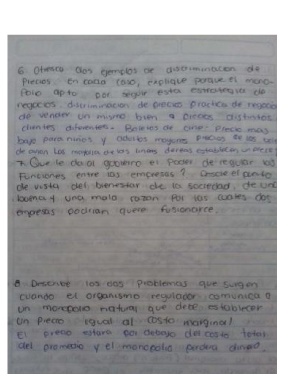 6 Ofresca dos ejemplos de discriminacion de
Precios. en cada caso, explique porque el mono-
polio opto por seguir esta estrategia de
negocios. discriminacion de precios practica de negocios
de vender un mismo bien a precios distintos
clientes diferentes. Boletos de cine: Precio mas
bajo para niños y adultos mayores precios de los
de avion La mayoria de las lineas aereas establecen un precio
7. Que le da al gobierno el Poder de regular las
Funciones entre las empresas? Desde el punto
de vista del bienestar de la sociedad, de una
buena y una mala razon por las cuales dos
empresas podrian querer fusionarse.
8 Describe los dos problemas que surgen
cuando el organismo regulador comunica a
un monopolio natural que debe establecer
un precio igual al costo marginal
El precio estara por debajo del costo total
del promedio y el monopolio perdera dinero.